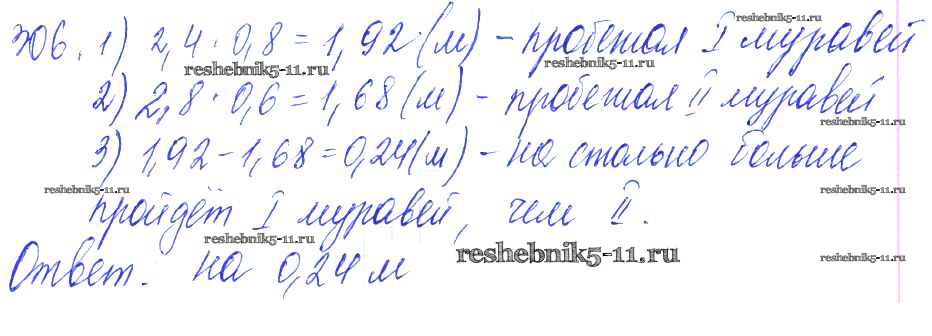 306. 1) 2,4 · 0,8 = 1,92 (м) - пробежал I муравей
2) 2,8 · 0,6 = 1,68 (м) - пробежал II муравей
3) 1,92 - 1,68 = 0,24 (м) - на столько больше
пройдёт I муравей, чем II.
Ответ. на 0,24 м
reshebnik5-11.ru
reshebnik5-11.ru
reshebnik5-11.ru
reshebnik5-11.ru
reshebnik5-11.ru
reshebnik5-11.ru
reshebnik5-11.ru
reshebnik5-11.ru